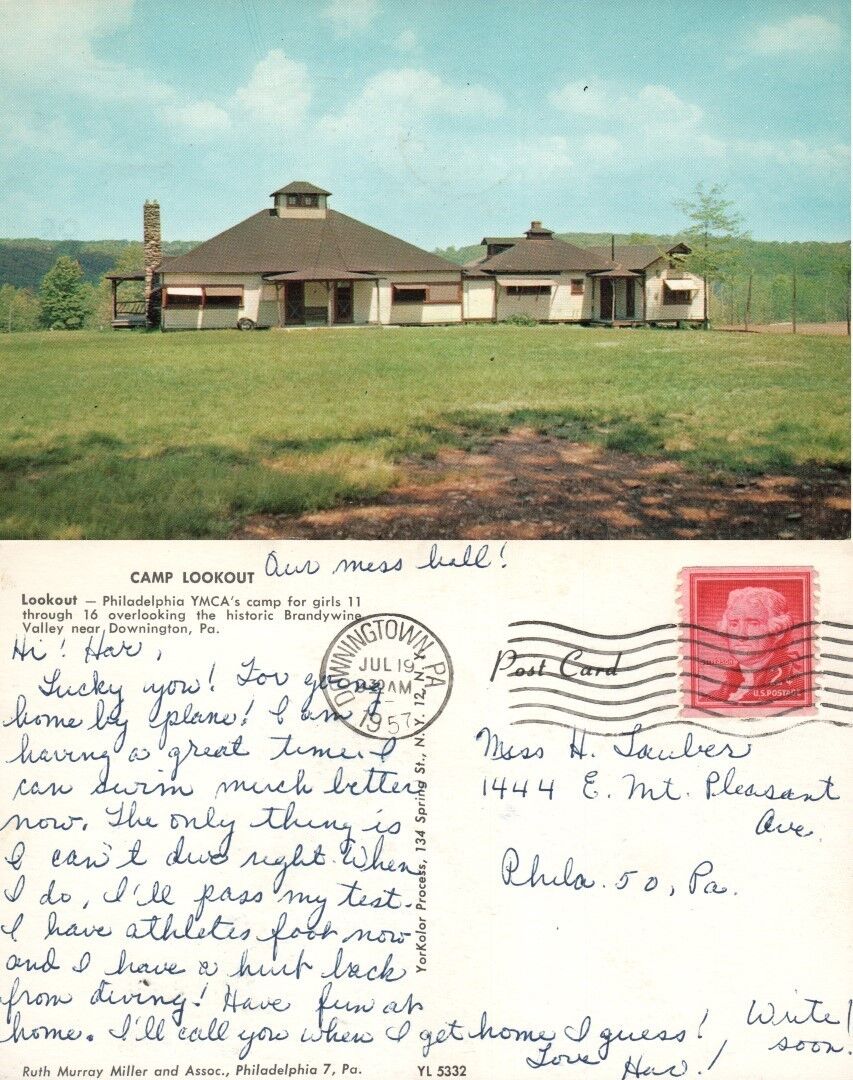 Our mess hall!
CAMP LOOKOUT
Lookout — Philadelphia YMCA's camp for girls 11
through 16 overlooking the historic Brandywine
Valley near Downington, Pa.
Hi! Har,
Lucky you! For going
home by plane! I am
having a great time. I
can swim much better
now. The only thing is
I can't dive right. When
I do, I'll pass my test.
I have athletes foot now
and I have a hurt back
from diving! Have fun at
home. I'll call you when I get home I guess!
Write!
soon.
Love
Har!
Ruth Murray Miller and Assoc., Philadelphia 7, Pa.
YL 5332
YorKolor Process, 134 Spring St., N. Y. 12, N.Y.
DOWNINGTOWN, PA
JUL 19
AM
1957
Post Card
JEFFERSON
2¢
U.S. POSTAGE
Miss H. Lauber
1444 E. Mt. Pleasant
Ave.
Phila. 50, Pa.